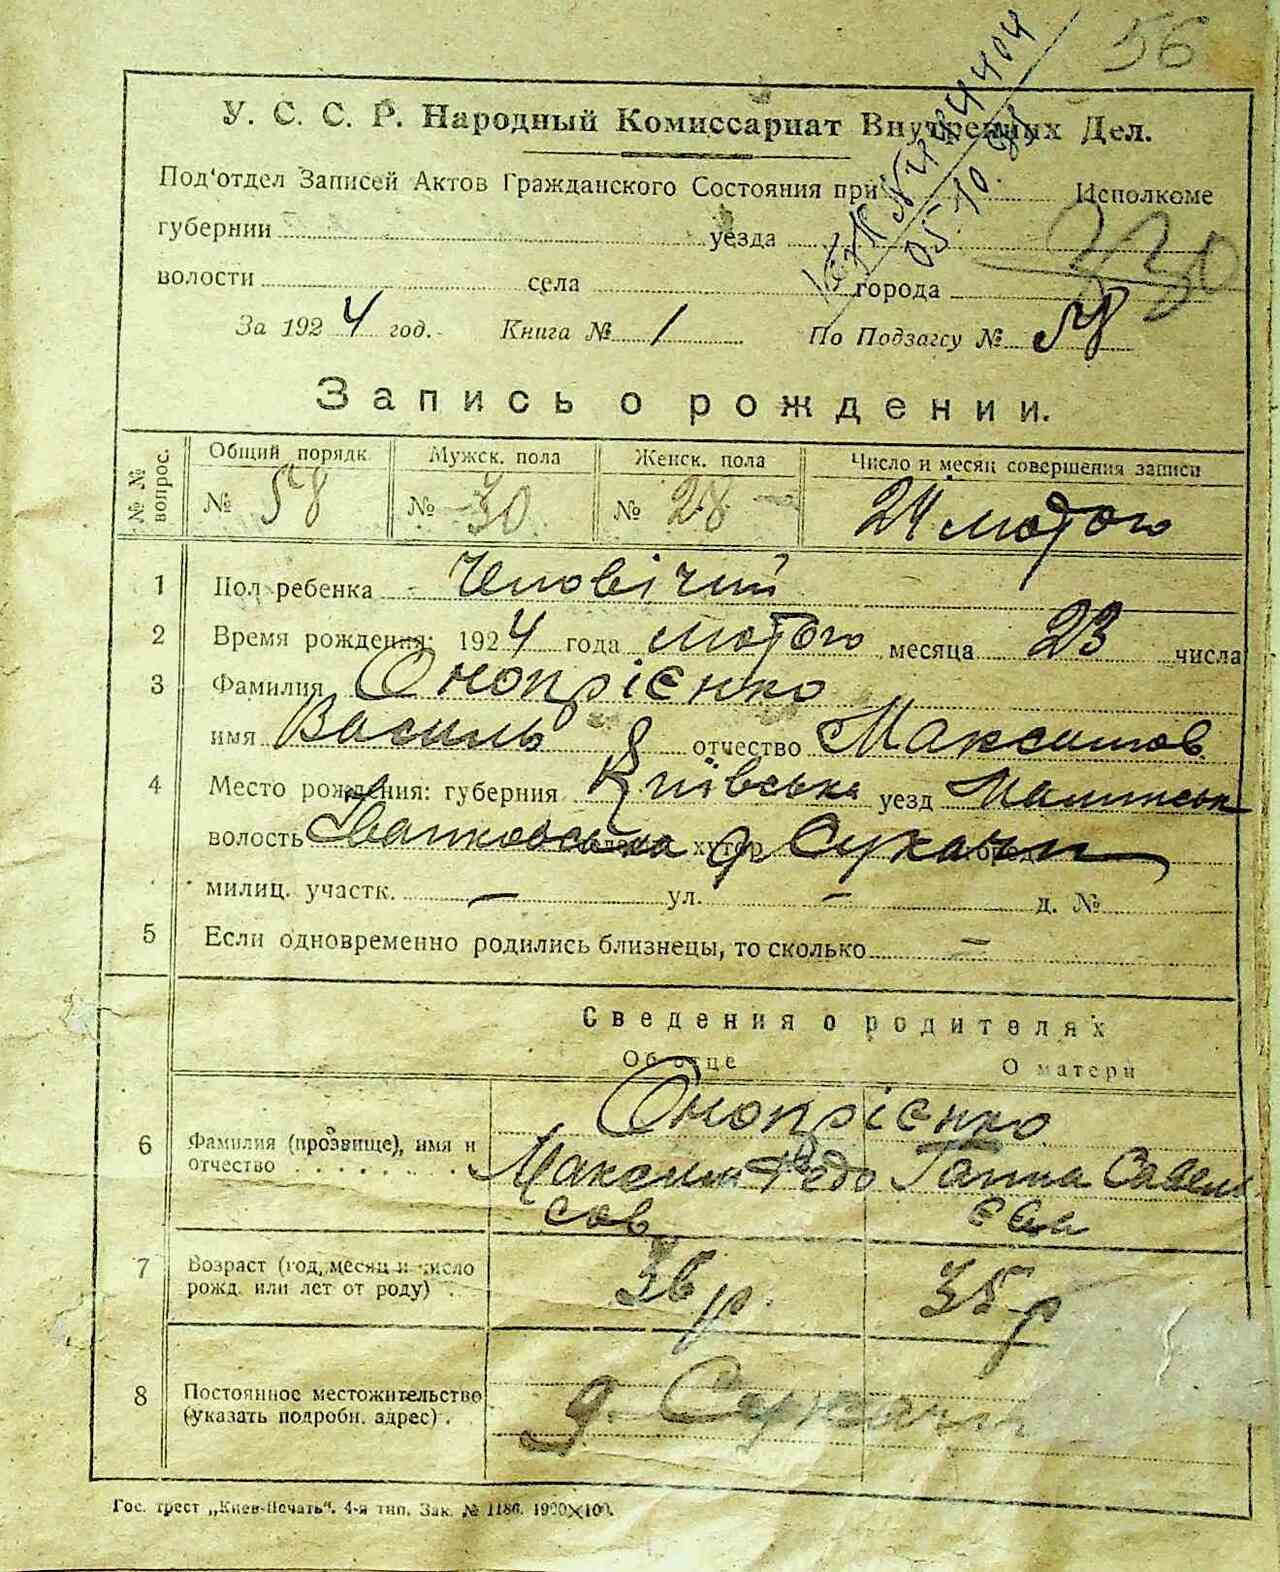 56
У. С. С. Р. Народный Комиссариат Внутренних Дел.
Под'отдел Записей Актов Гражданского Состояния при Исполкоме
губернии уезда
330
волости села города
За 1924 год. Книга № 1 По Подзагсу № 58
Запись о рождении.
№ № вопрос. Общий порядк Мужск. пола Женск. пола Число и месяц совершения записи
№ 58 № 30 № 28 24 лютого
1 Пол ребенка Чоловічий
2 Время рождения: 1924 года лютого месяца 23 числа
3 Фамилия Онопрієнко
имя Василь отчество Максимов
4 Место рождения: губерния Київська уезд Малинськ
волость Іванковська хутор д Сукачи
милиц. участк. – ул. – д. №
5 Если одновременно родились близнецы, то сколько –
Сведения о родителях
Об отце О матери
Онопрієнко
6 Фамилия (прозвище), имя и
отчество . . . . . . . . Максим Федо Ганна Савель
сов євн
7 Возраст (год, месяц и число
рожд. или лет от роду) . 36 р. 35 р
8 Постоянное местожительство
(указать подробн. адрес) . д. Сукачи
Гос. трест „Киев-Печать". 4-я тип. Зак. № 1186. 1900×100.